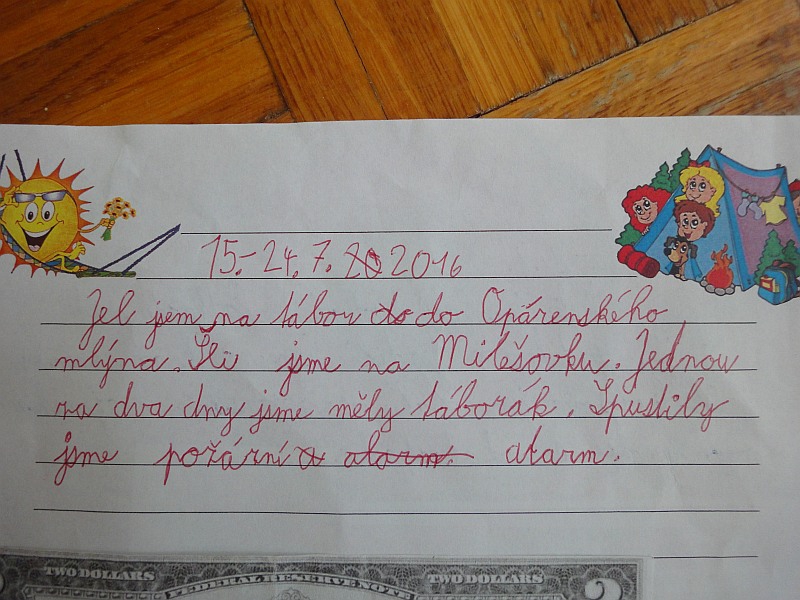 15.-24. 7. 20 2016
Jel jsem na tábor do do Opárenského
mlýna. Šli jsme na Milešovku. Jednou
za dva dny jsme měly táborák. Spustily
jsme požární a alarm. alarm.
TWO DOLLARS FEDERAL RESERVE NOTE TWO DOLLARS 2